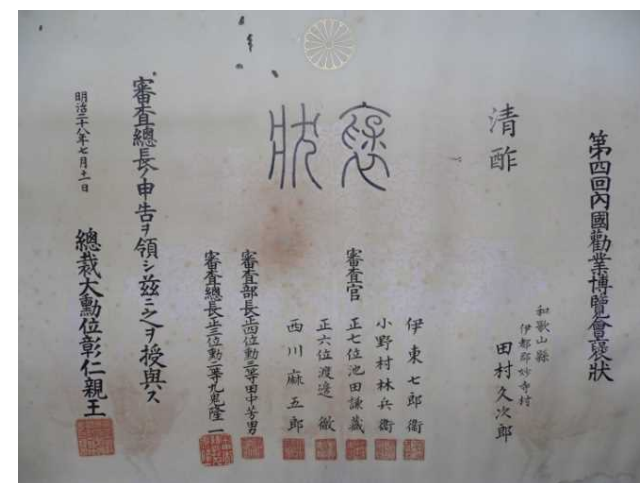 第四回內國勸業博覽會褒狀
和歌山縣
伊都郡妙寺村
田村久次郎
清酢
褒狀
審査官
伊東七郎衞
小野村林兵衞
正七位池田謙藏
正六位渡邊徹
西川麻五郎
審査部長正四位勳三等田中芳男
審査總長正三位勳二等九鬼隆一
審査總長ノ申告ヲ領シ茲ニ之ヲ授與ス
明治二十八年七月十一日
總裁大勳位彰仁親王